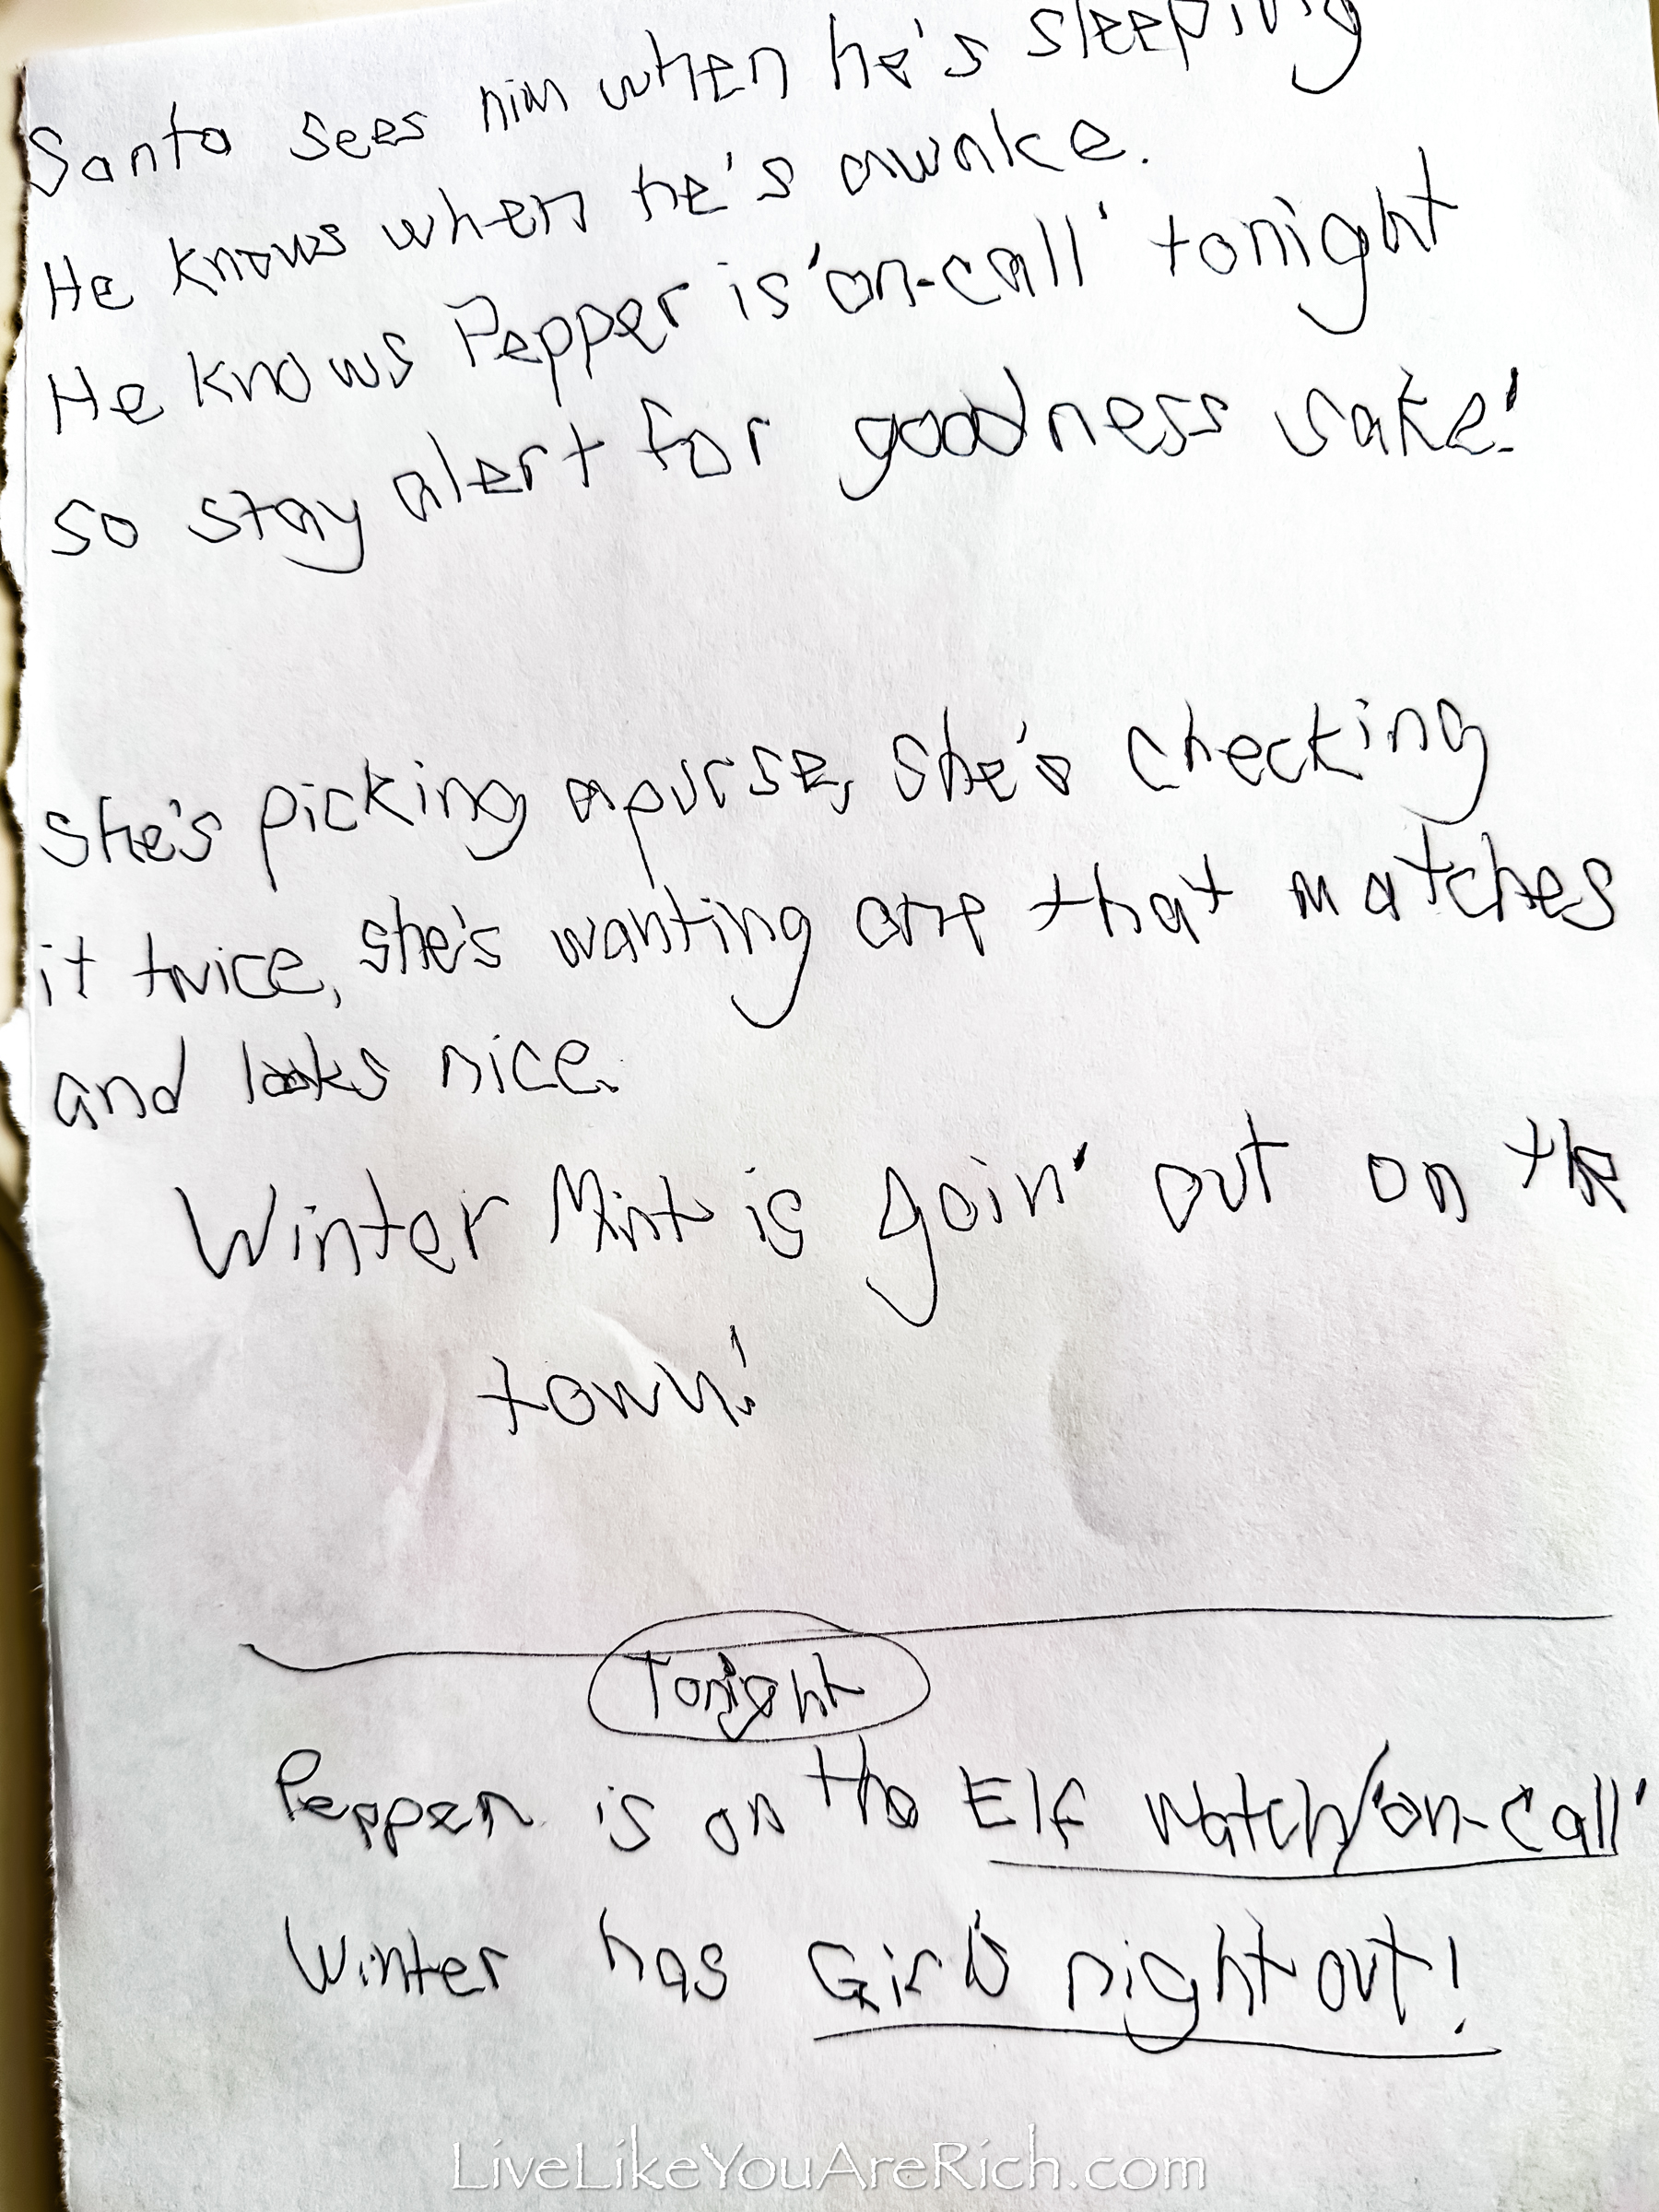 Santa sees him when he's sleeping
He knows when he's awake.
He knows Pepper is 'on-call' tonight
so stay alert for goodness sake!
She's picking a purse, she's checking
it twice, she's wanting one that matches
and looks nice.
Winter Mint is goin' out on the
town!
Tonight
Pepper is on the Elf Watch/'on-call'
Winter has Girl's night out!
LiveLikeYouAreRich.com